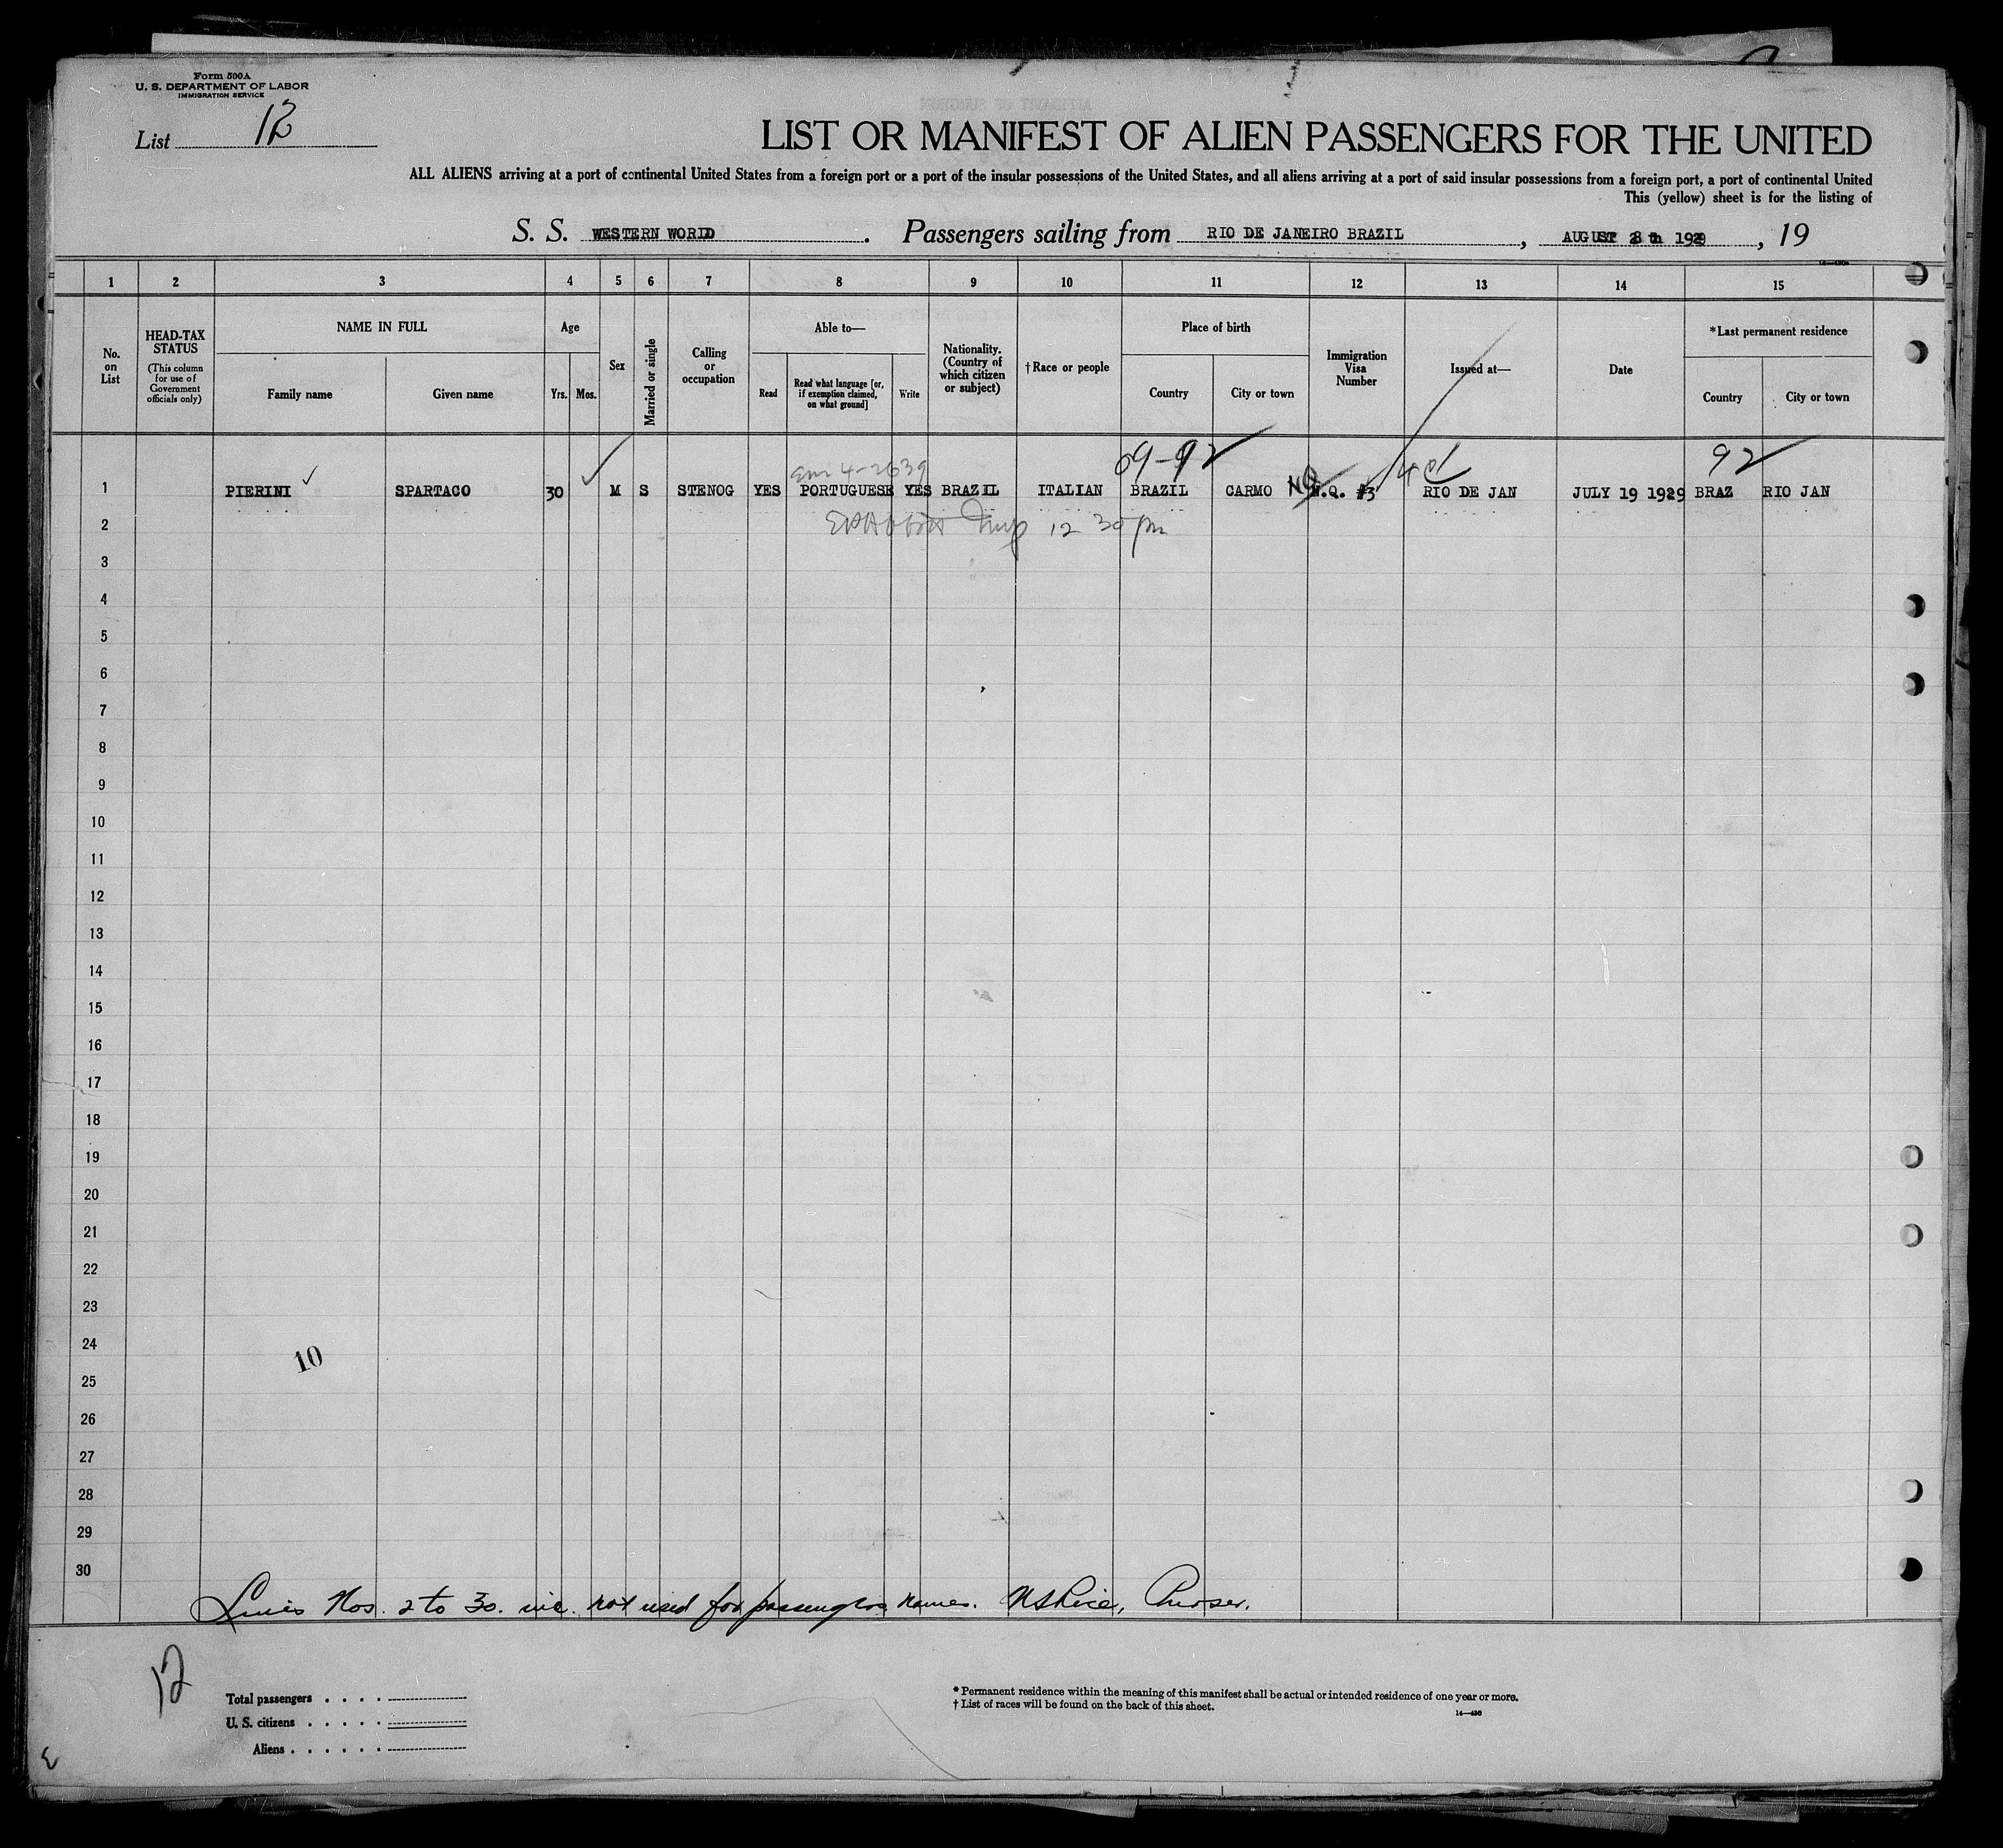 Form 500A
U. S. DEPARTMENT OF LABOR
IMMIGRATION SERVICE
List 12
LIST OR MANIFEST OF ALIEN PASSENGERS FOR THE UNITED
ALL ALIENS arriving at a port of continental United States from a foreign port or a port of the insular possessions of the United States, and all aliens arriving at a port of said insular possessions from a foreign port, a port of continental United
This (yellow) sheet is for the listing of
S. S. WESTERN WORLD. Passengers sailing from RIO DE JANEIRO BRAZIL, AUGUST 8th 1929, 19
1 2 3 4 5 6 7 8 9 10 11 12 13 14 15
No. on List
HEAD-TAX STATUS
(This column for use of Government officials only)
NAME IN FULL
Family name
Given name
Age
Yrs.
Mos.
Sex
Married or single
Calling or occupation
Able to—
Read
Read what language [or, if exemption claimed, on what ground]
Write
Nationality. (Country of which citizen or subject)
†Race or people
Place of birth
Country
City or town
Immigration Visa Number
Issued at—
Date
*Last permanent residence
Country
City or town
69-92
92
4-2639
1 PIERINI SPARTACO 30 M S STENOG YES PORTUGUESE YES BRAZIL ITALIAN BRAZIL CARMO NQ N.Q. #3 RIO DE JAN JULY 19 1929 BRAZ RIO JAN
12 30 pm
2
3
4
5
6
7
8
9
10
11
12
13
14
15
16
17
18
19
20
21
22
23
24
10
25
26
27
28
29
30
Lines Nos. 2 to 30. inc. not used for passengers names. Purser.
12
Total passengers
U. S. citizens
Aliens
* Permanent residence within the meaning of this manifest shall be actual or intended residence of one year or more.
† List of races will be found on the back of this sheet.
14—430